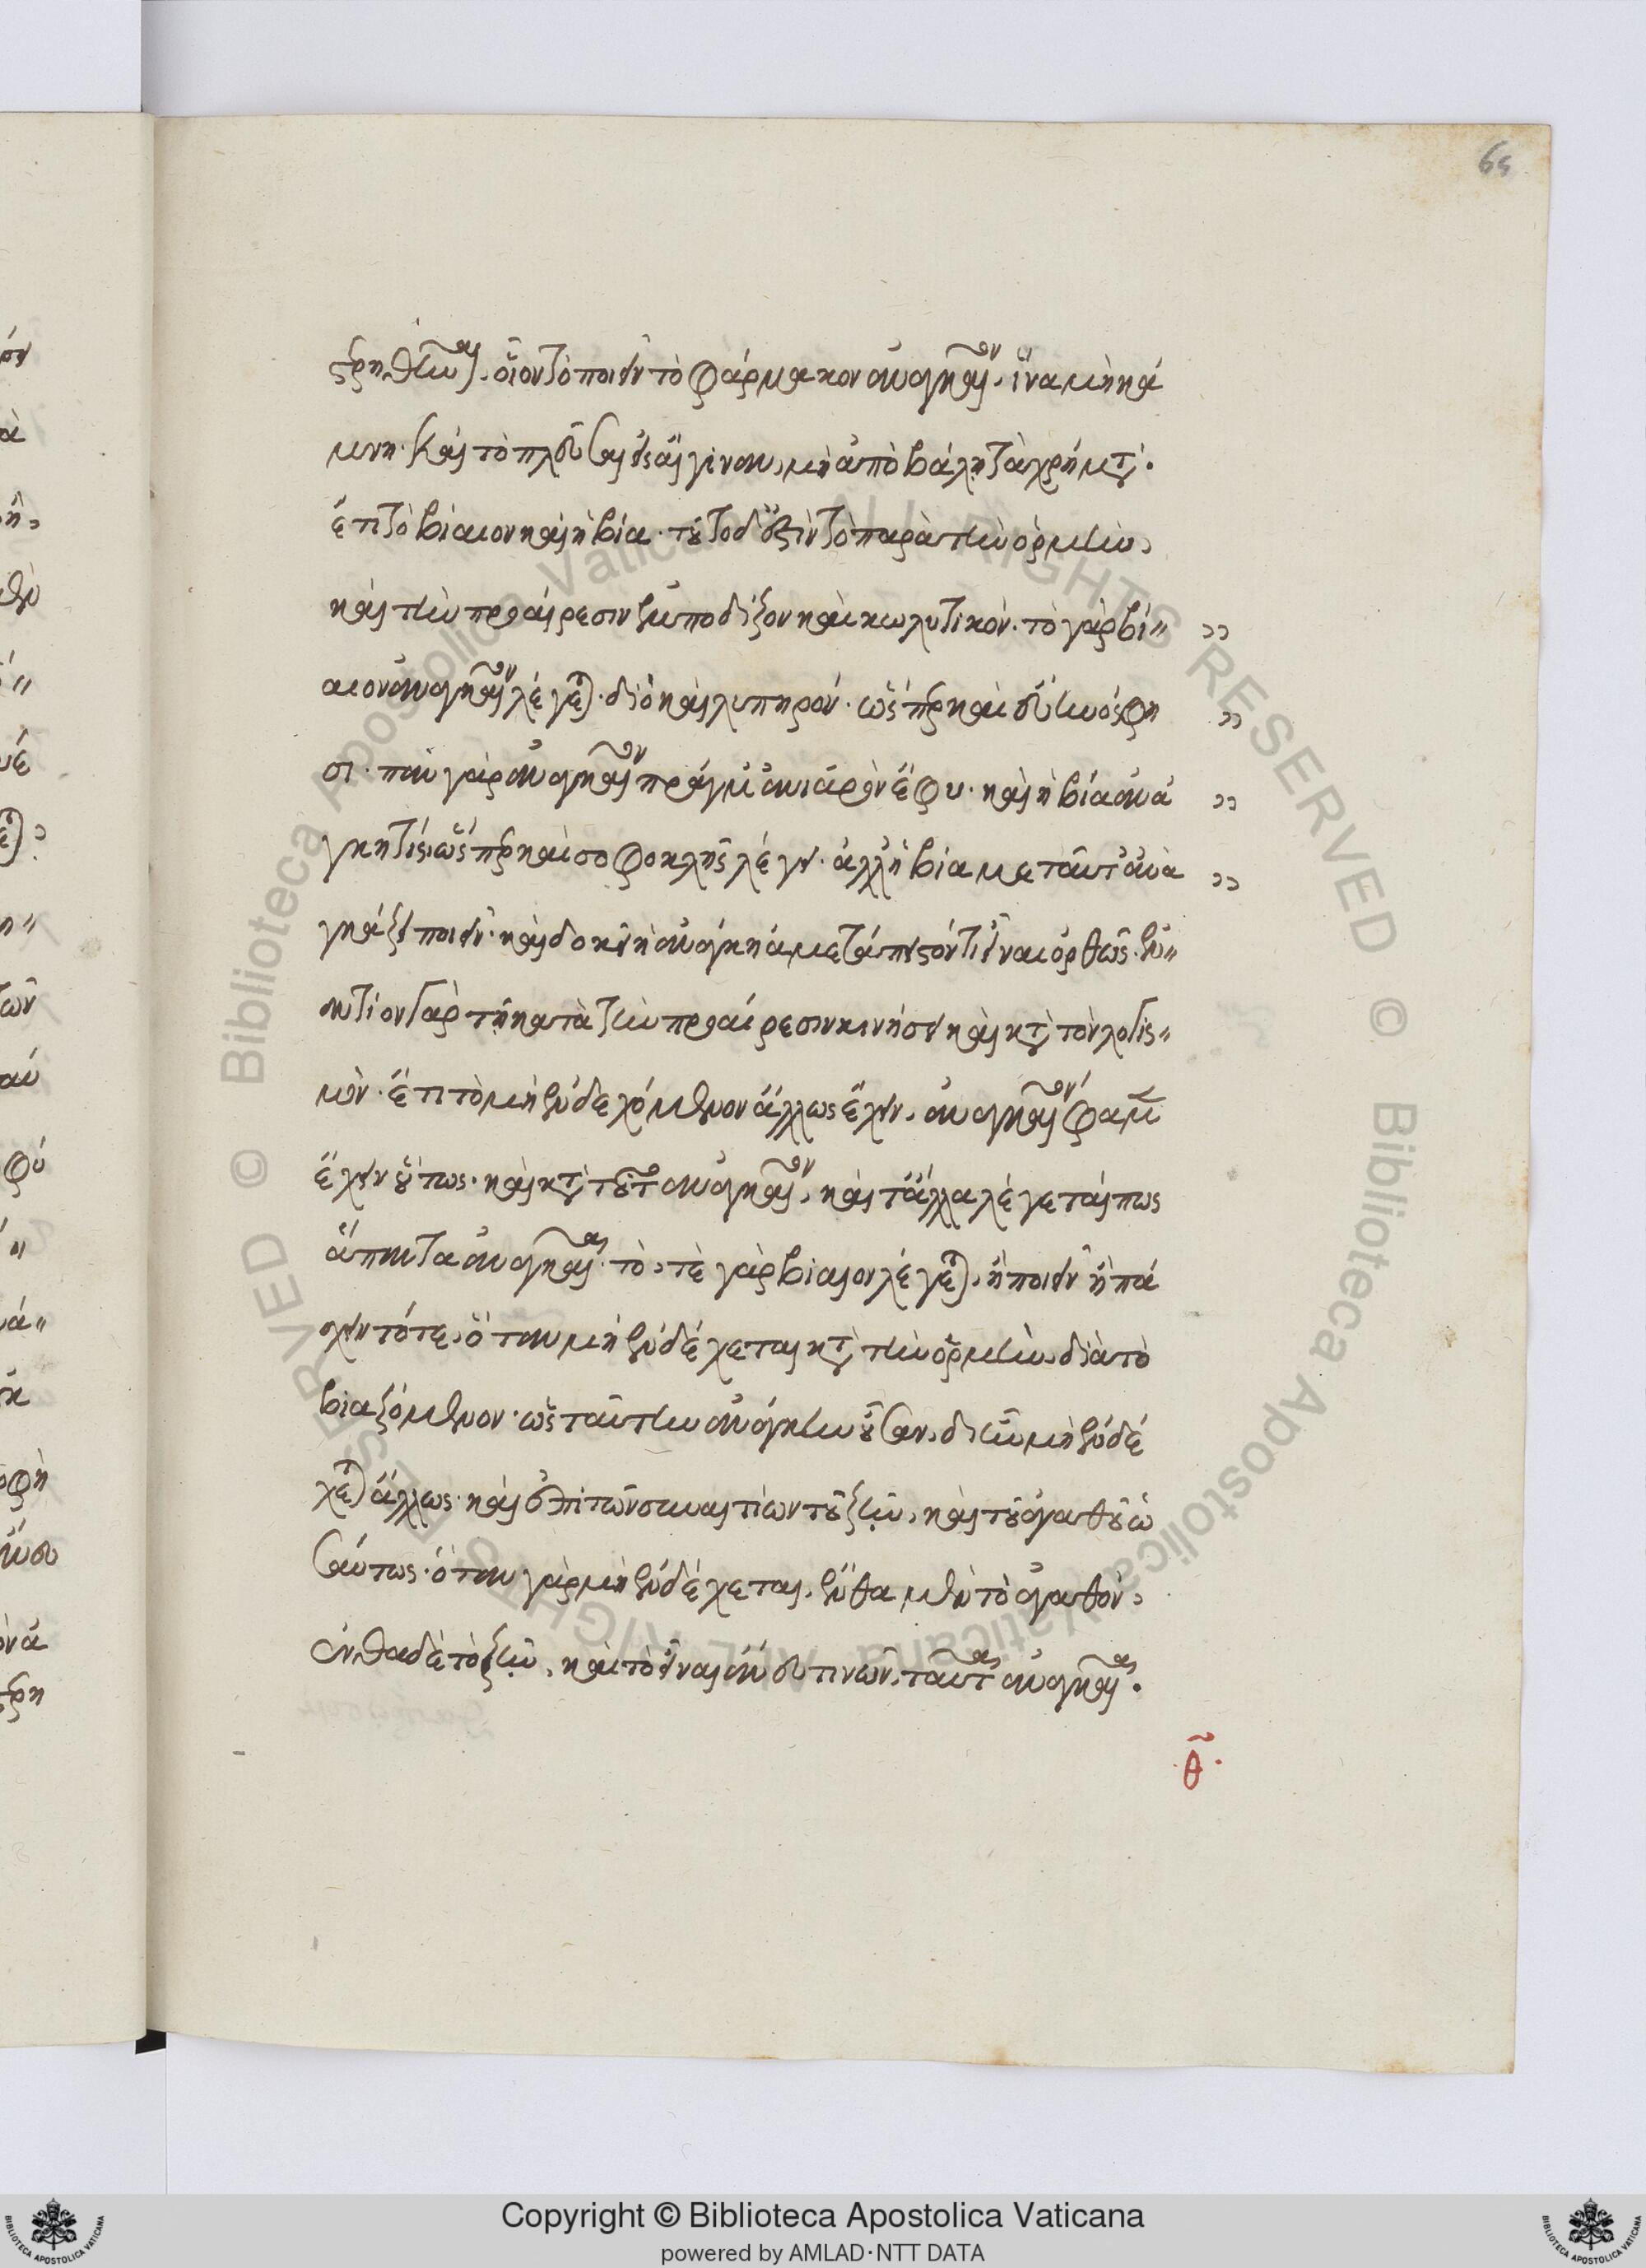 στερηθῆναι. οἷον τὸ ποιεῖν τὸ φάρμακον ἀναγκαῖον, ἵνα μὴ κά
μνη. καὶ τὸ πλεῦσαι εἰς αἴγιναν, μὴ ἀποβάλη τὰ χρήματα.
ἔτι τὸ βίαιον καὶ ἡ βία. τοῦτο δ' ἐστὶν τὸ παρὰ τὴν ὁρμὴν,
καὶ τὴν προαίρεσιν ἐμποδίζον καὶ κωλυτικόν. τὸ γὰρ βί"
αιον ἀναγκαῖον λέγεται. διὸ καὶ λυπηρόν. ὥσπερ καὶ εὔηνός φη
σι. πᾶν γὰρ ἀναγκαῖον πρᾶγμ' ἀνιαρὸν ἔφυ. καὶ ἡ βία ἀνά
γκη τίς. ὥσπερ καὶ σοφοκλῆς λέγει. ἀλλ' ἡ βία με ταῦτ' ἀνα
γκάζει ποιεῖν. καὶ δοκεῖ ἡ ἀνάγκη ἀμετάπειστόν τι εἶναι ὀρθῶς. ἐν"
αντίον γὰρ τῇ κατὰ τὴν προαίρεσιν κινήσει καὶ κατὰ τὸν λογισ"
μόν. ἔτι τὸ μὴ ἐνδεχόμενον ἄλλως ἔχειν, ἀναγκαῖόν φαμεν
ἔχειν οὕτως. καὶ κατὰ τοῦτο ἀναγκαῖον, καὶ τἄλλα λέγεταί πως
ἅπαντα ἀναγκαῖα. τό, τε γὰρ βίαιον λέγεται, ἢ ποιεῖν ἢ πά
σχειν τότε, ὅταν μὴ ἐνδέχεται κατὰ τὴν ὁρμὴν, διὰ τὸ
βιαζόμενον. ὡς ταύτην ἀνάγκην οὖσαν, δι' ἣν μὴ ἐνδέ
χεται ἄλλως. καὶ ἐπὶ τῶν συναιτίων τοῦ ζῆν, καὶ τοῦ ἀγαθοῦ ὡ
σαύτως. ὅταν γὰρ μὴ ἐνδέχεται, ἔνθα μὲν τὸ ἀγαθόν,
ἔνθα δὲ τὸ ζῆν, καὶ τὸ εἶναι ἄνευ τινῶν, ταῦτα ἀναγκαῖα.
θ
© Biblioteca Apostolica Vaticana ALL RIGHTS RESERVED
Copyright © Biblioteca Apostolica Vaticana
powered by AMLAD·NTT DATA